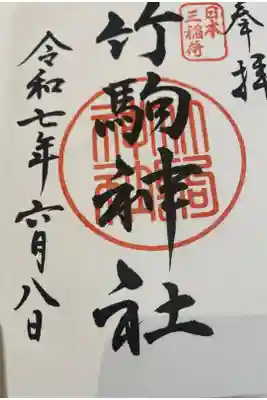 奉拝
日本
三稲荷
竹駒神社
竹駒
神社
令和七年六月八日